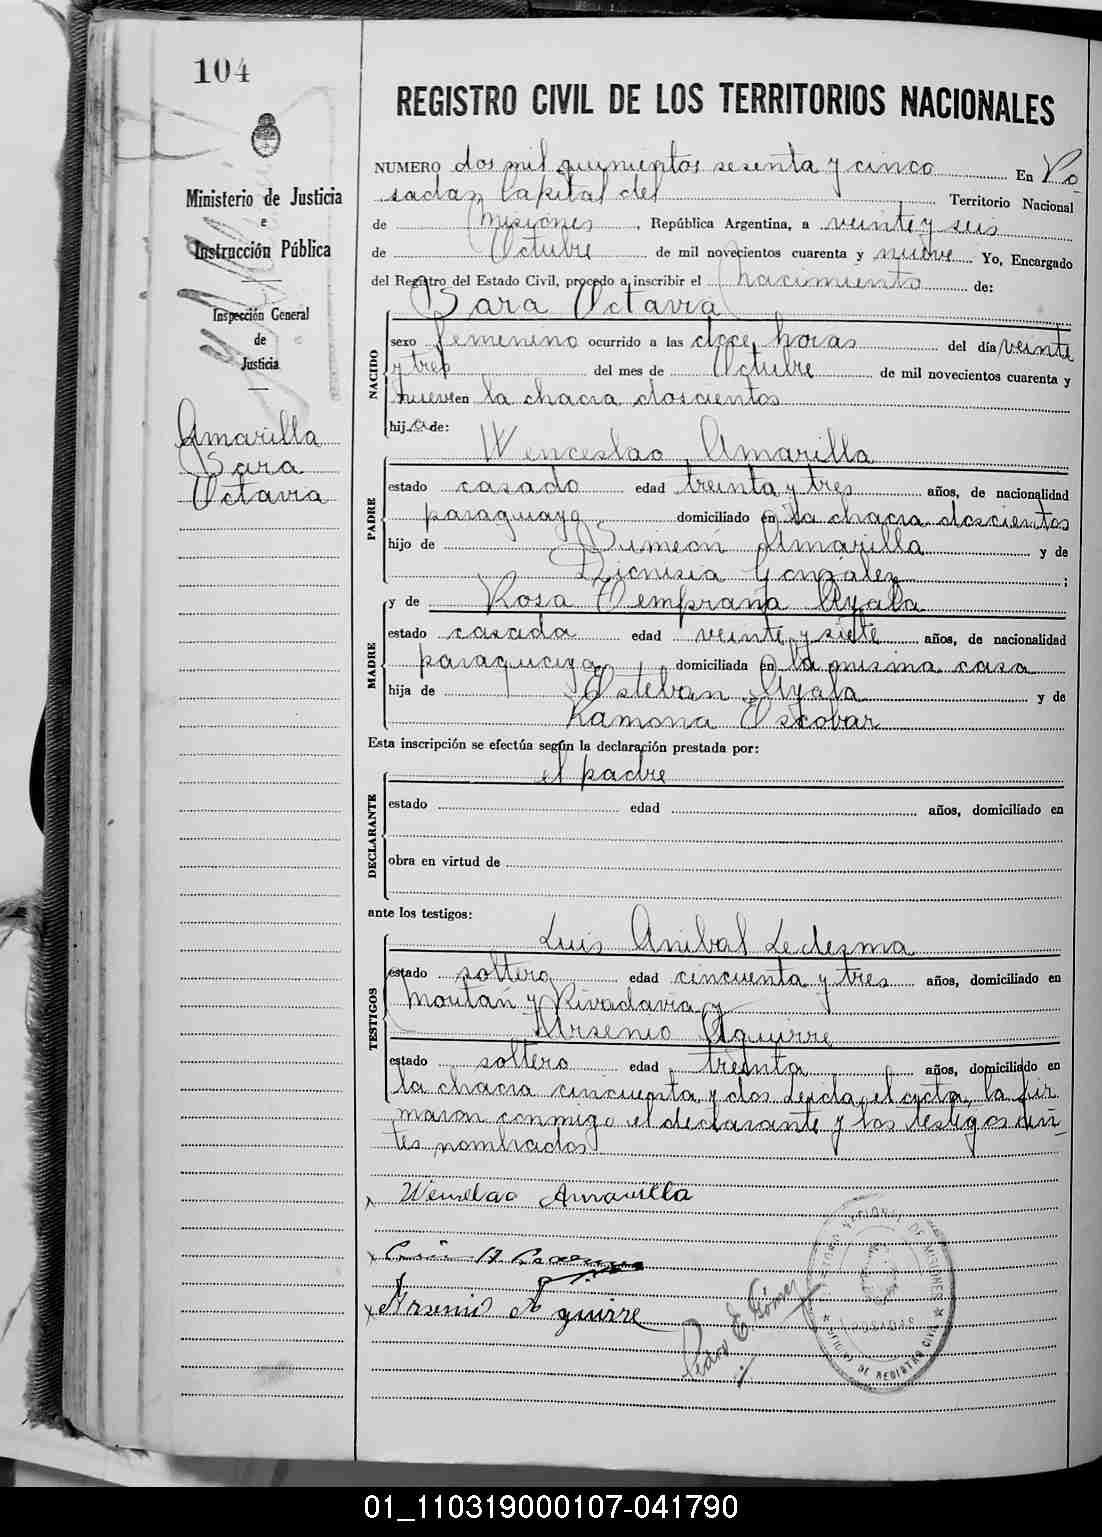 104
Ministerio de Justicia
e
Instrucción Pública
Inspección General
de
Justicia
Amarilla
Sara
Octavia
REGISTRO CIVIL DE LOS TERRITORIOS NACIONALES
NUMERO dos mil quinientos sesenta y cinco En Po
sadas, Capital del Territorio Nacional
de Misiones, República Argentina, a veinte y seis
de Octubre de mil novecientos cuarenta y nueve Yo, Encargado
del Registro del Estado Civil, procedo a inscribir el Nacimiento de:
Sara Octavia
NACIDO
sexo femenino ocurrido a las doce horas del día veinte
y tres del mes de Octubre de mil novecientos cuarenta y
nueve en la chacra doscientos
hija de:
Wenceslao Amarilla
PADRE
estado casado edad treinta y tres años, de nacionalidad
paraguaya domiciliado en la chacra doscientos
hijo de Simeón Amarilla y de
Dionisia González ;
y de Rosa Temprana Ayala
MADRE
estado casada edad veinte y siete años, de nacionalidad
paraguaya, domiciliada en la misma casa
hija de Esteban Ayala y de
Ramona Escobar
Esta inscripción se efectúa según la declaración prestada por:
el padre
DECLARANTE
estado edad años, domiciliado en
obra en virtud de
ante los testigos:
Luis Anibal Ledesma
TESTIGOS
estado soltero edad cincuenta y tres años, domiciliado en
Moután y Rivadavia y
Arsenio Aguirre
estado soltero edad treinta años, domiciliado en
la chacra cincuenta y dos Leida el acta, la fir
maron conmigo el declarante y los testigos an
tes nombrados
Wenceslao Amarilla
Arsenio Aguirre
Pedro E Gómez
OFICINA DE REGISTRO CIVIL
01_110319000107-041790